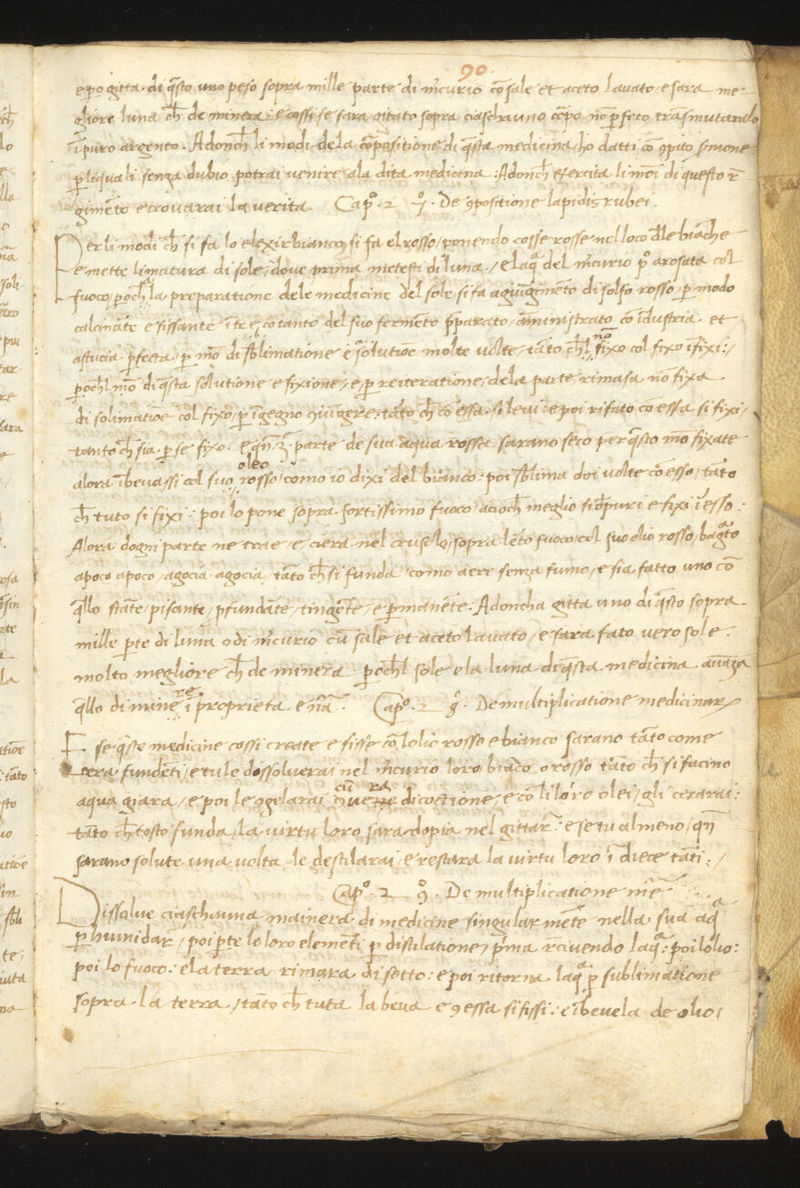 90
e poi gitta di q̃sto uno peso sopra mille parte di m̃curio cõ sale et aceto lavato e sara me
gliore luna ch̃ de minera e cossi se sara gitato sopra ciaschauno corpo nõ p̃feto trasmutaralo
ĩ puro argento. Adonch̃ li modi de la cõpositione di q̃sta medicina ho datti
p̃ li quali senza dubio potrai venire ala dita medicina : Adonch̃ exercita li modi di questo r̃
gimẽto e trovarai la verita Cap̊. 2 De 9positione lapidis rubei.
Per li modi ch̃ si fa lo elexir bianco si fa el rosso ponendo cosse rosse nel loco dele biãche
e mette limatura di sole dove prima metesti di luna / e laq̃ del m̃curio p̊ arosata col
fuoco p̃och̃ la preparatione dele medicine del sole si fa solfo rosso p̃ modo
calcinãte e fissante cotanto del suo fermẽto p̃parato aministrato cõ ĩdustria et
astucia p̃fecta p̃ mõ di sb̃limatione e solutioe molte volte tãto ch̃l fixo col fixo ĩfixi:
p̃och̃l mõ di q̃sta solutione e fixione e p̃ reiteratione dela parte rimasa nõ fixa
di solimatioe col fixo p̃ ĩgegno 9iũgere tãto ch̃ cõ essa si levi e poi rifato cõ essa si fixi
tanto ch̃ sia p̃ se fixo. parte de sua aqua rossa sarano seco per q̃sto mõ fixate
alora ĩbevassi col suo oleo rosso como io dixi del bianco : poi sb̃lima doi volte cõ esso tãto
ch̃ tuto si fixi : poi lo pone sopra fortissimo fuoco acioch̃ meglio si dipuri e fixi ĩ esso :
Alora dogni parte ne trae e ciera nel cruselo sopra lẽto fuoco col suo olio rosso
apoco apoco agocia agocia tãto ch̃ si funda como aere senza fumo e sia fatto uno cõ
q̃llo stãte pisante p̃fundãte tingẽte e p̃manẽte. Adoncha gitta uno di q̃sto sopra
mille p̃te di luna o di m̃curio cũ sale et aceto lavato e sara fato vero sole.
molto megliore ch̃ de minera : p̃och̃l sole e la luna di q̃sta medicina avãza
q̃llo di minere ĩ proprieta e nã. Cap̊. 2 De multiplicatione medicinar
E se q̃ste medicine cossi create e fisse cõ lolio rosso e bianco sarano tãto come
cera fundẽti e tu le dossolverai nel m̃curio loro biãco o rosso tãto ch̃ si facino
aqua giara e poi le 9gelarai cũ dicotione e cõ li loro olei gli cerarai :
tãto ch̃ tosto funda la virtu loro sara dopia nel gittar. e se tu almeno qñ
sarano solute una volta le destilarai e restara la virtu loro ĩ diece tãti :
Cap̊. 2 9̊. De multiplicatione
Dissolve ciaschuna mainera di medicine singularmẽte nella sua aq̃
p̃ humidar poi p̃te le loro elemẽti p̃ distilatione p̃ma rcivendo laq̃ : poi lolio :
poi lo fuoco : e la terra rimara di sotto : e poi ritorna laq̃ p̃ sublimatione
sopra la terra tãto ch̃ tuta la beva e 9 essa si fissi : e ĩbevela de olio